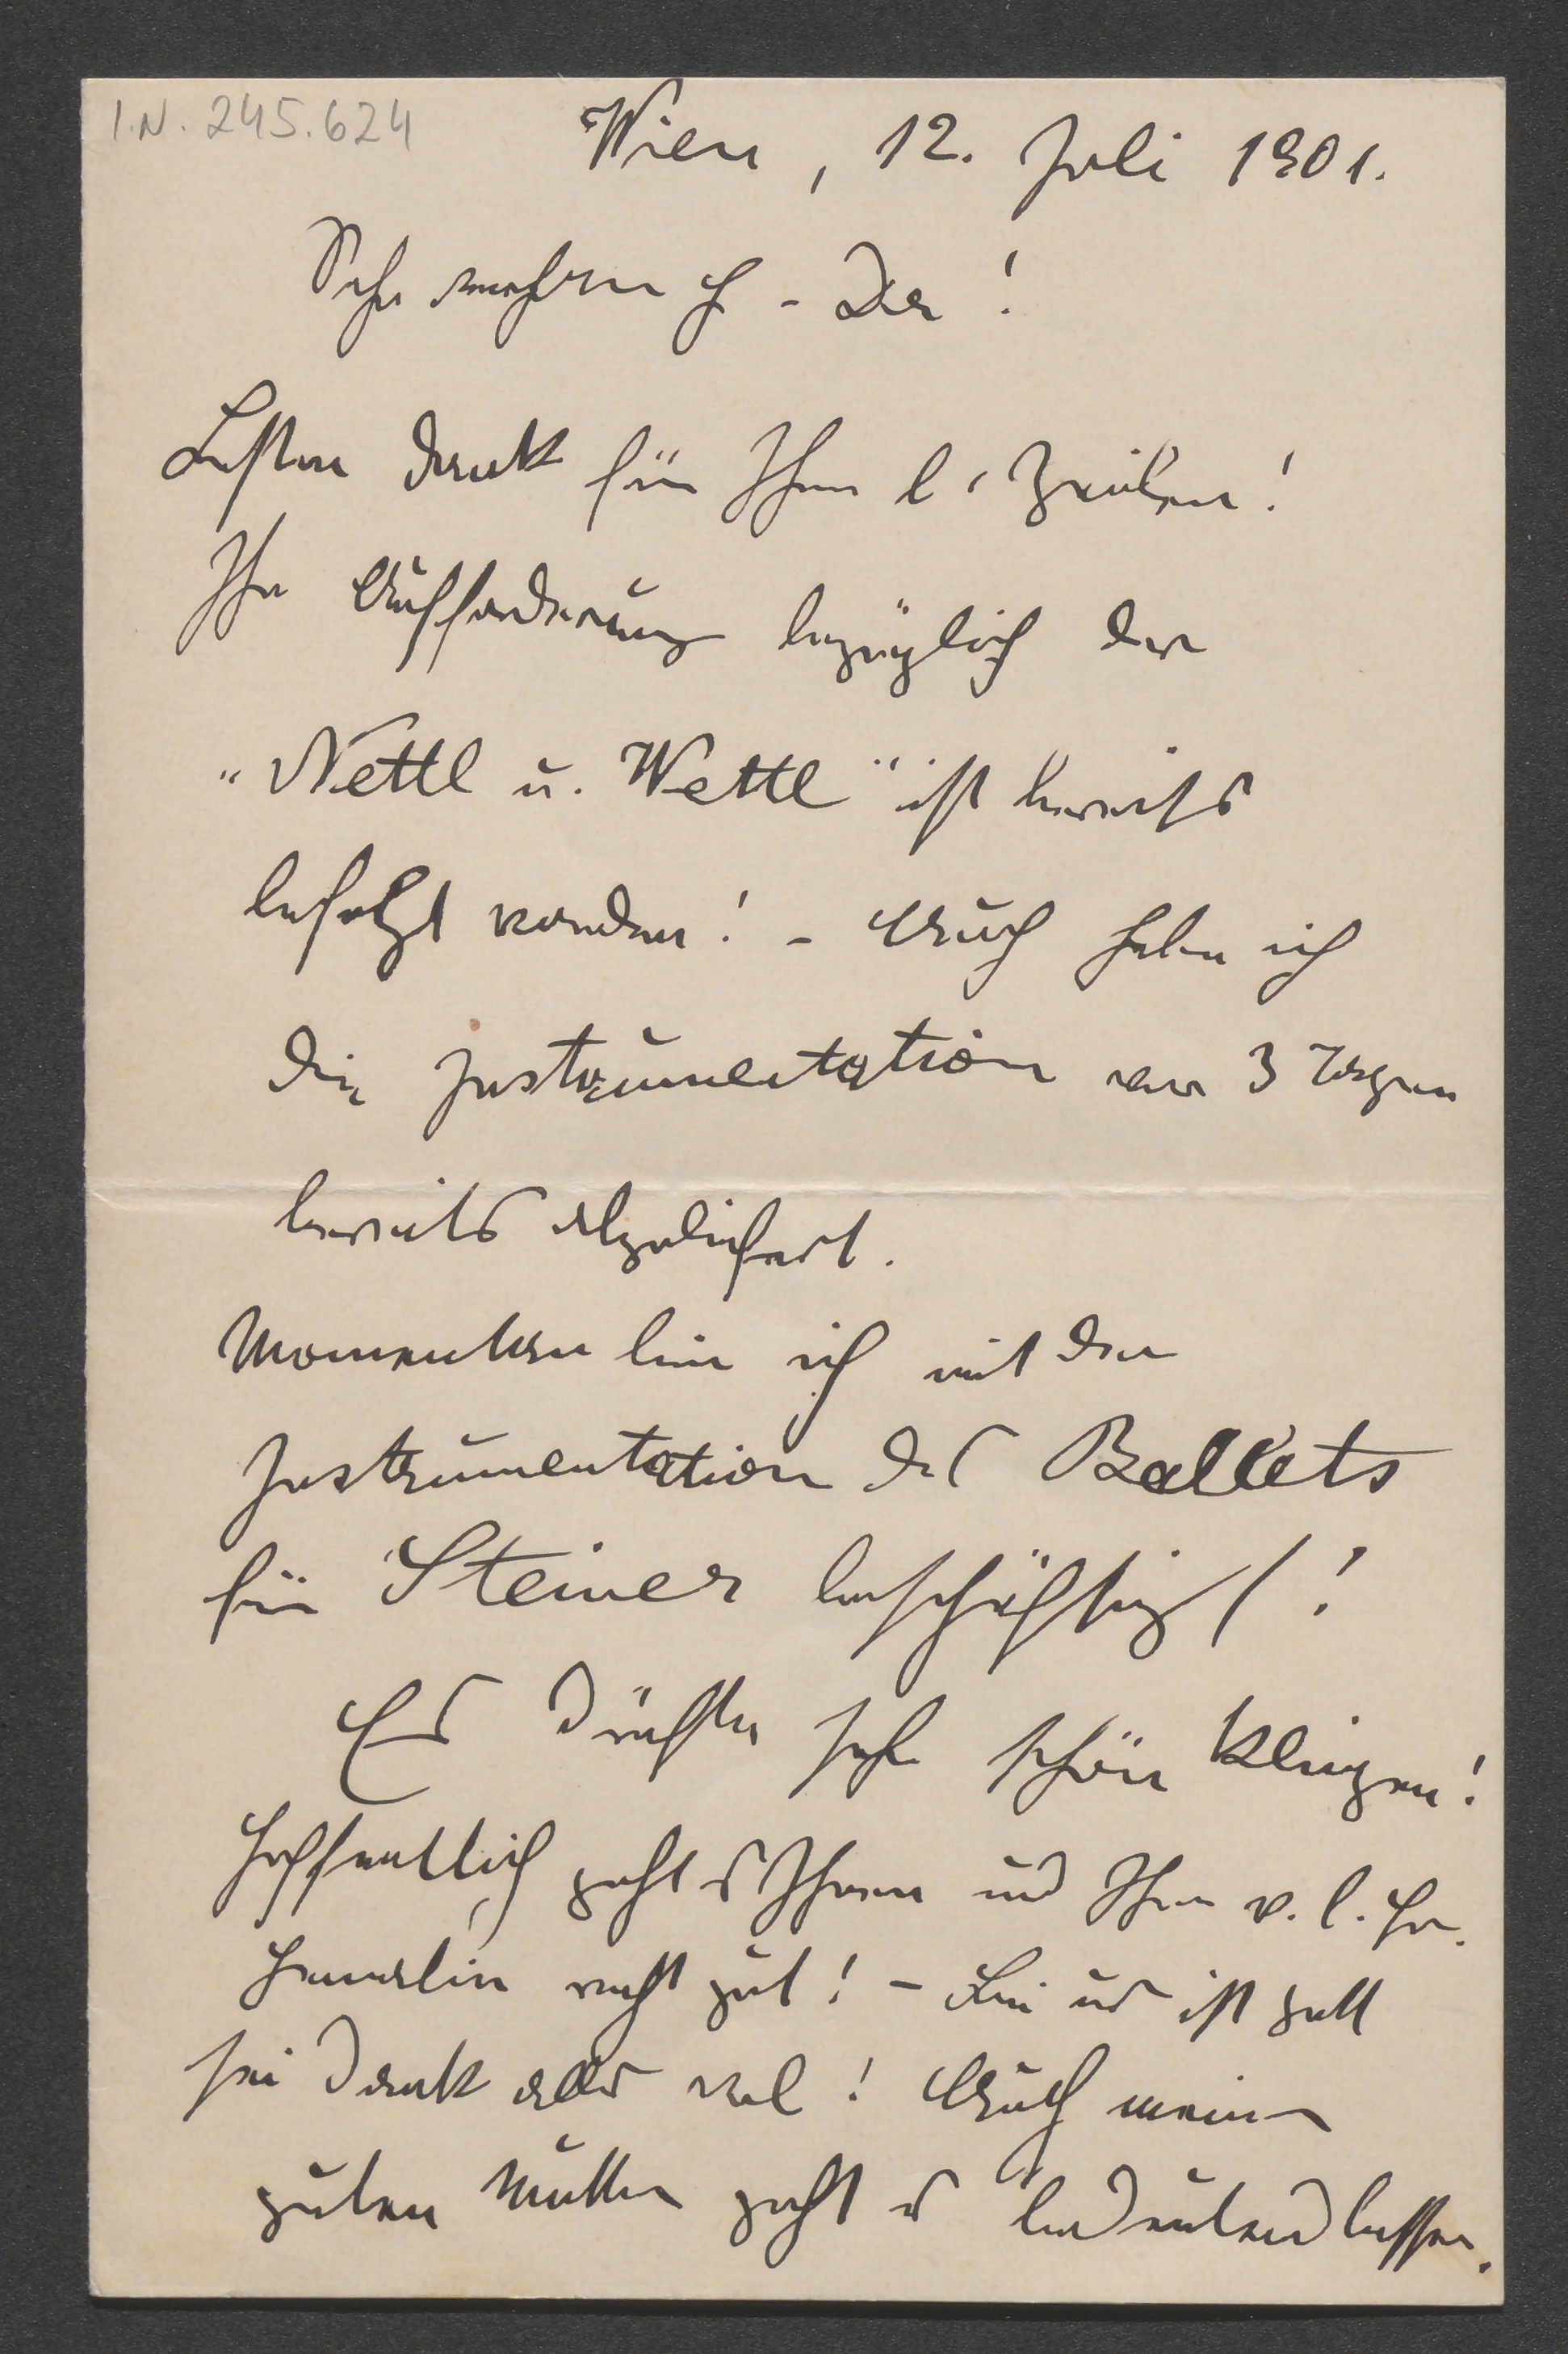 I.N. 245.624
Wien, 12. Juli 1901.
Sehr verehrter H. - Dr!
Besten Dank für Ihre l. Zeilen!
Ihr Aufforderung bezüglich der
"Nettl u. Wettl" ist bereits
befolgt worden! - Auch habe ich
die Instrumentation vor 3 Tagen
bereits abgeliefert.
Momentan bin ich mit der
Instrumentation des Ballets
für Steiner beschäftigt!
Es dürfte sehr schön klingen!
Hoffentlich geht es Ihnen und Ihrer v. l. Fr.
Gemalin recht gut! - Bei uns ist Gott
sei Dank alles wol! Auch meiner
guten Mutter geht es bedeutend besser.